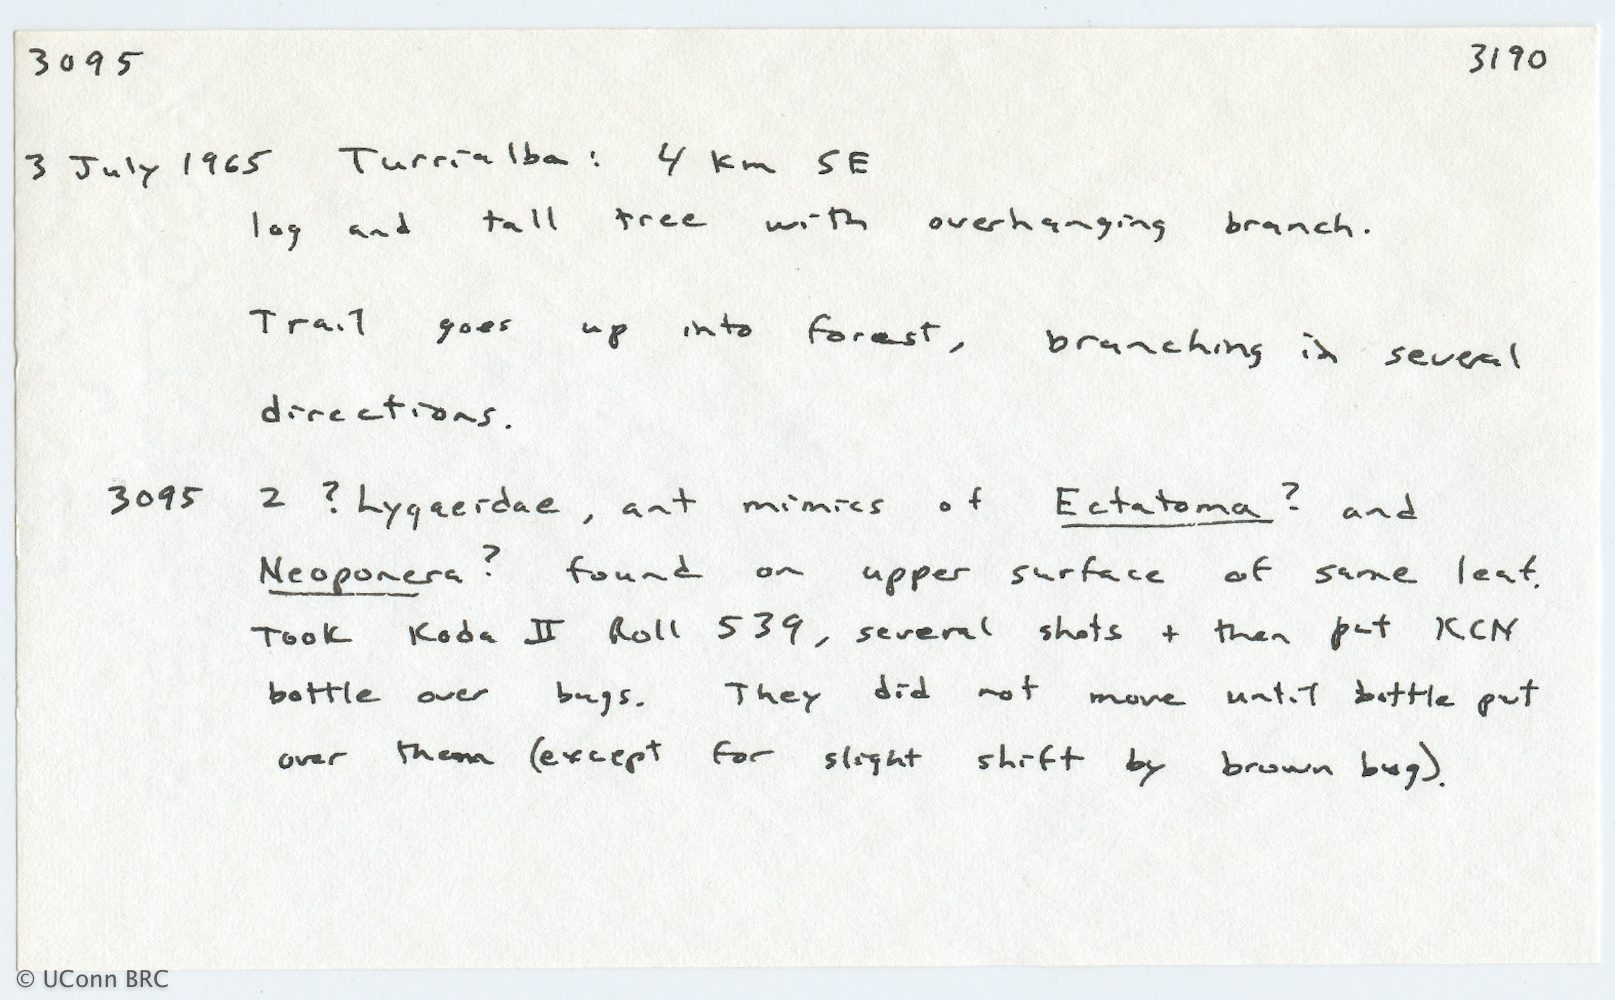 3095 3190
3 July 1965 Turrialba: 4 km SE
log and tall tree with overhanging branch.
Trail goes up into forest, branching in several
directions.
3095 2 ? Lygaeidae, ant mimics of Ectatoma? and
Neoponera? found on upper surface of same leaf.
Took Koda II Roll 539, several shots + then put KCN
bottle over bugs. They did not move until bottle put
over them (except for slight shift by brown bug).
© UConn BRC